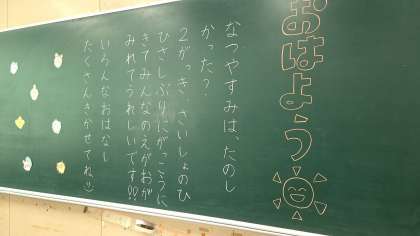 おはよう
なつやすみは、たのし
かった？
２がっき、さいしょのひ
ひさしぶりにがっこうに
きてみんなのえがおが
みれてうれしいです!!
いろんなおはなし
たくさんきかせてね